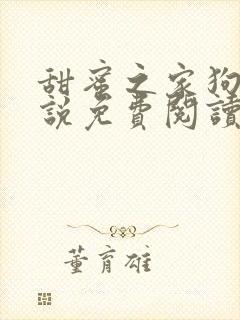 甜蜜之家狗
說免費閱讀
董育雄